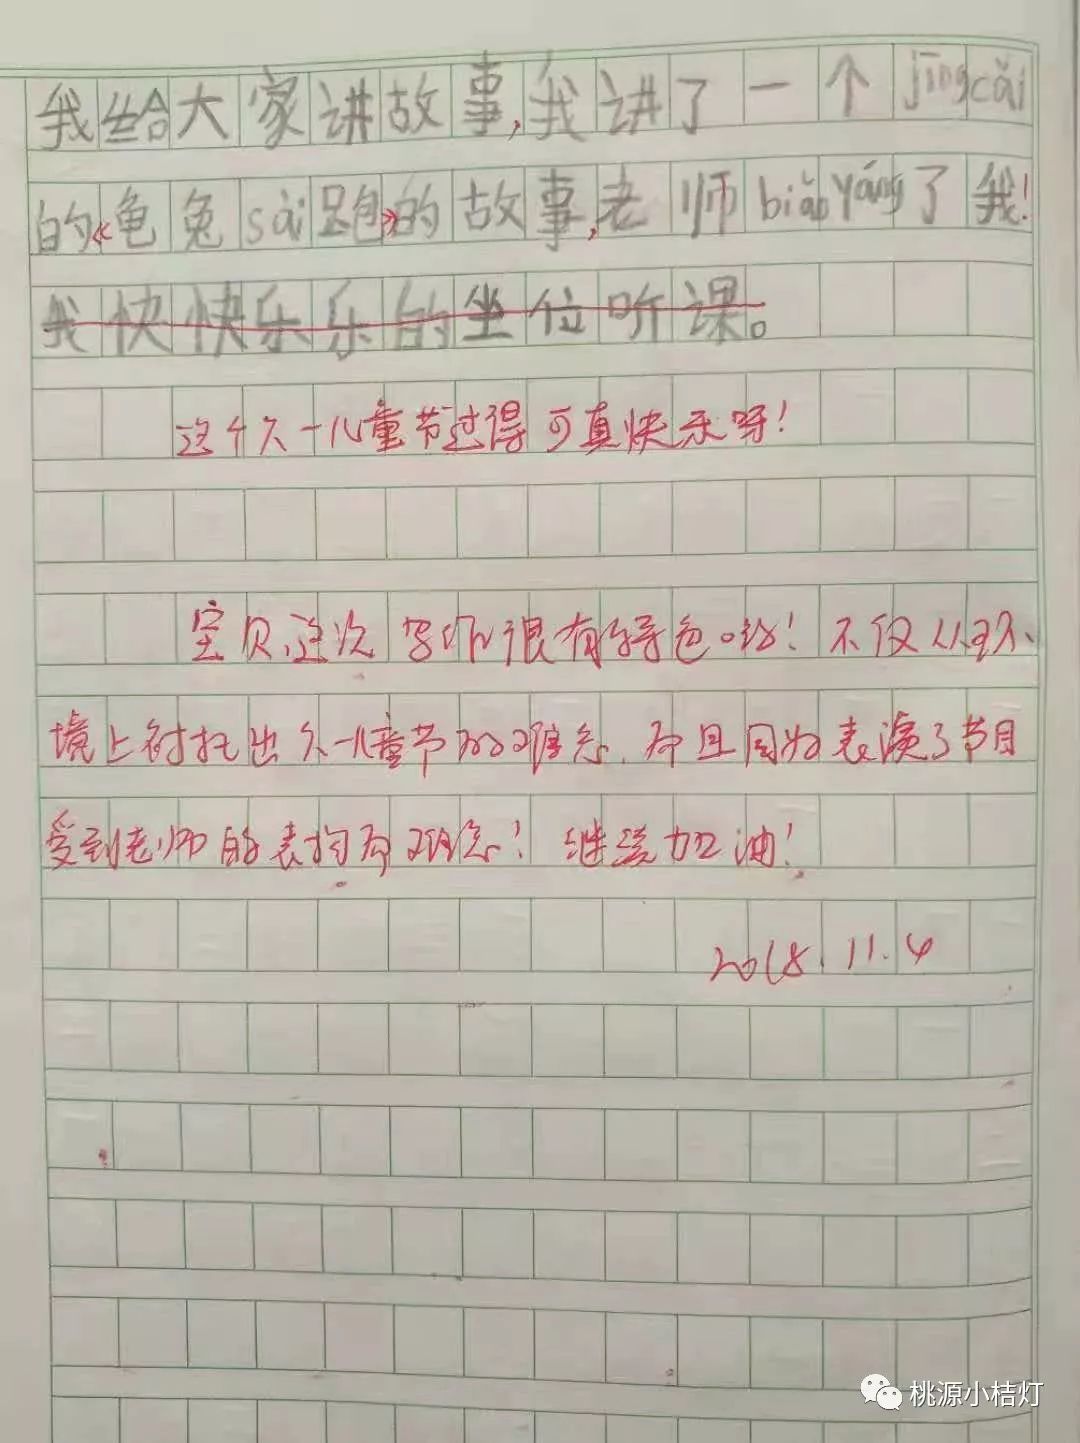 我给大家讲故事,我讲了一个jīngcǎi
的《龟兔sài跑》的故事,老师biǎoyáng了我!
我快快乐乐的坐位听课。
这个六一儿童节过得可真快乐呀!
宝贝,这次写作很有特色哟!不仅从环
境上衬托出六一儿童节的难忘,而且因为表演了节目
受到老师的表扬而难忘!继续加油!
2018.11.4
桃源小桔灯